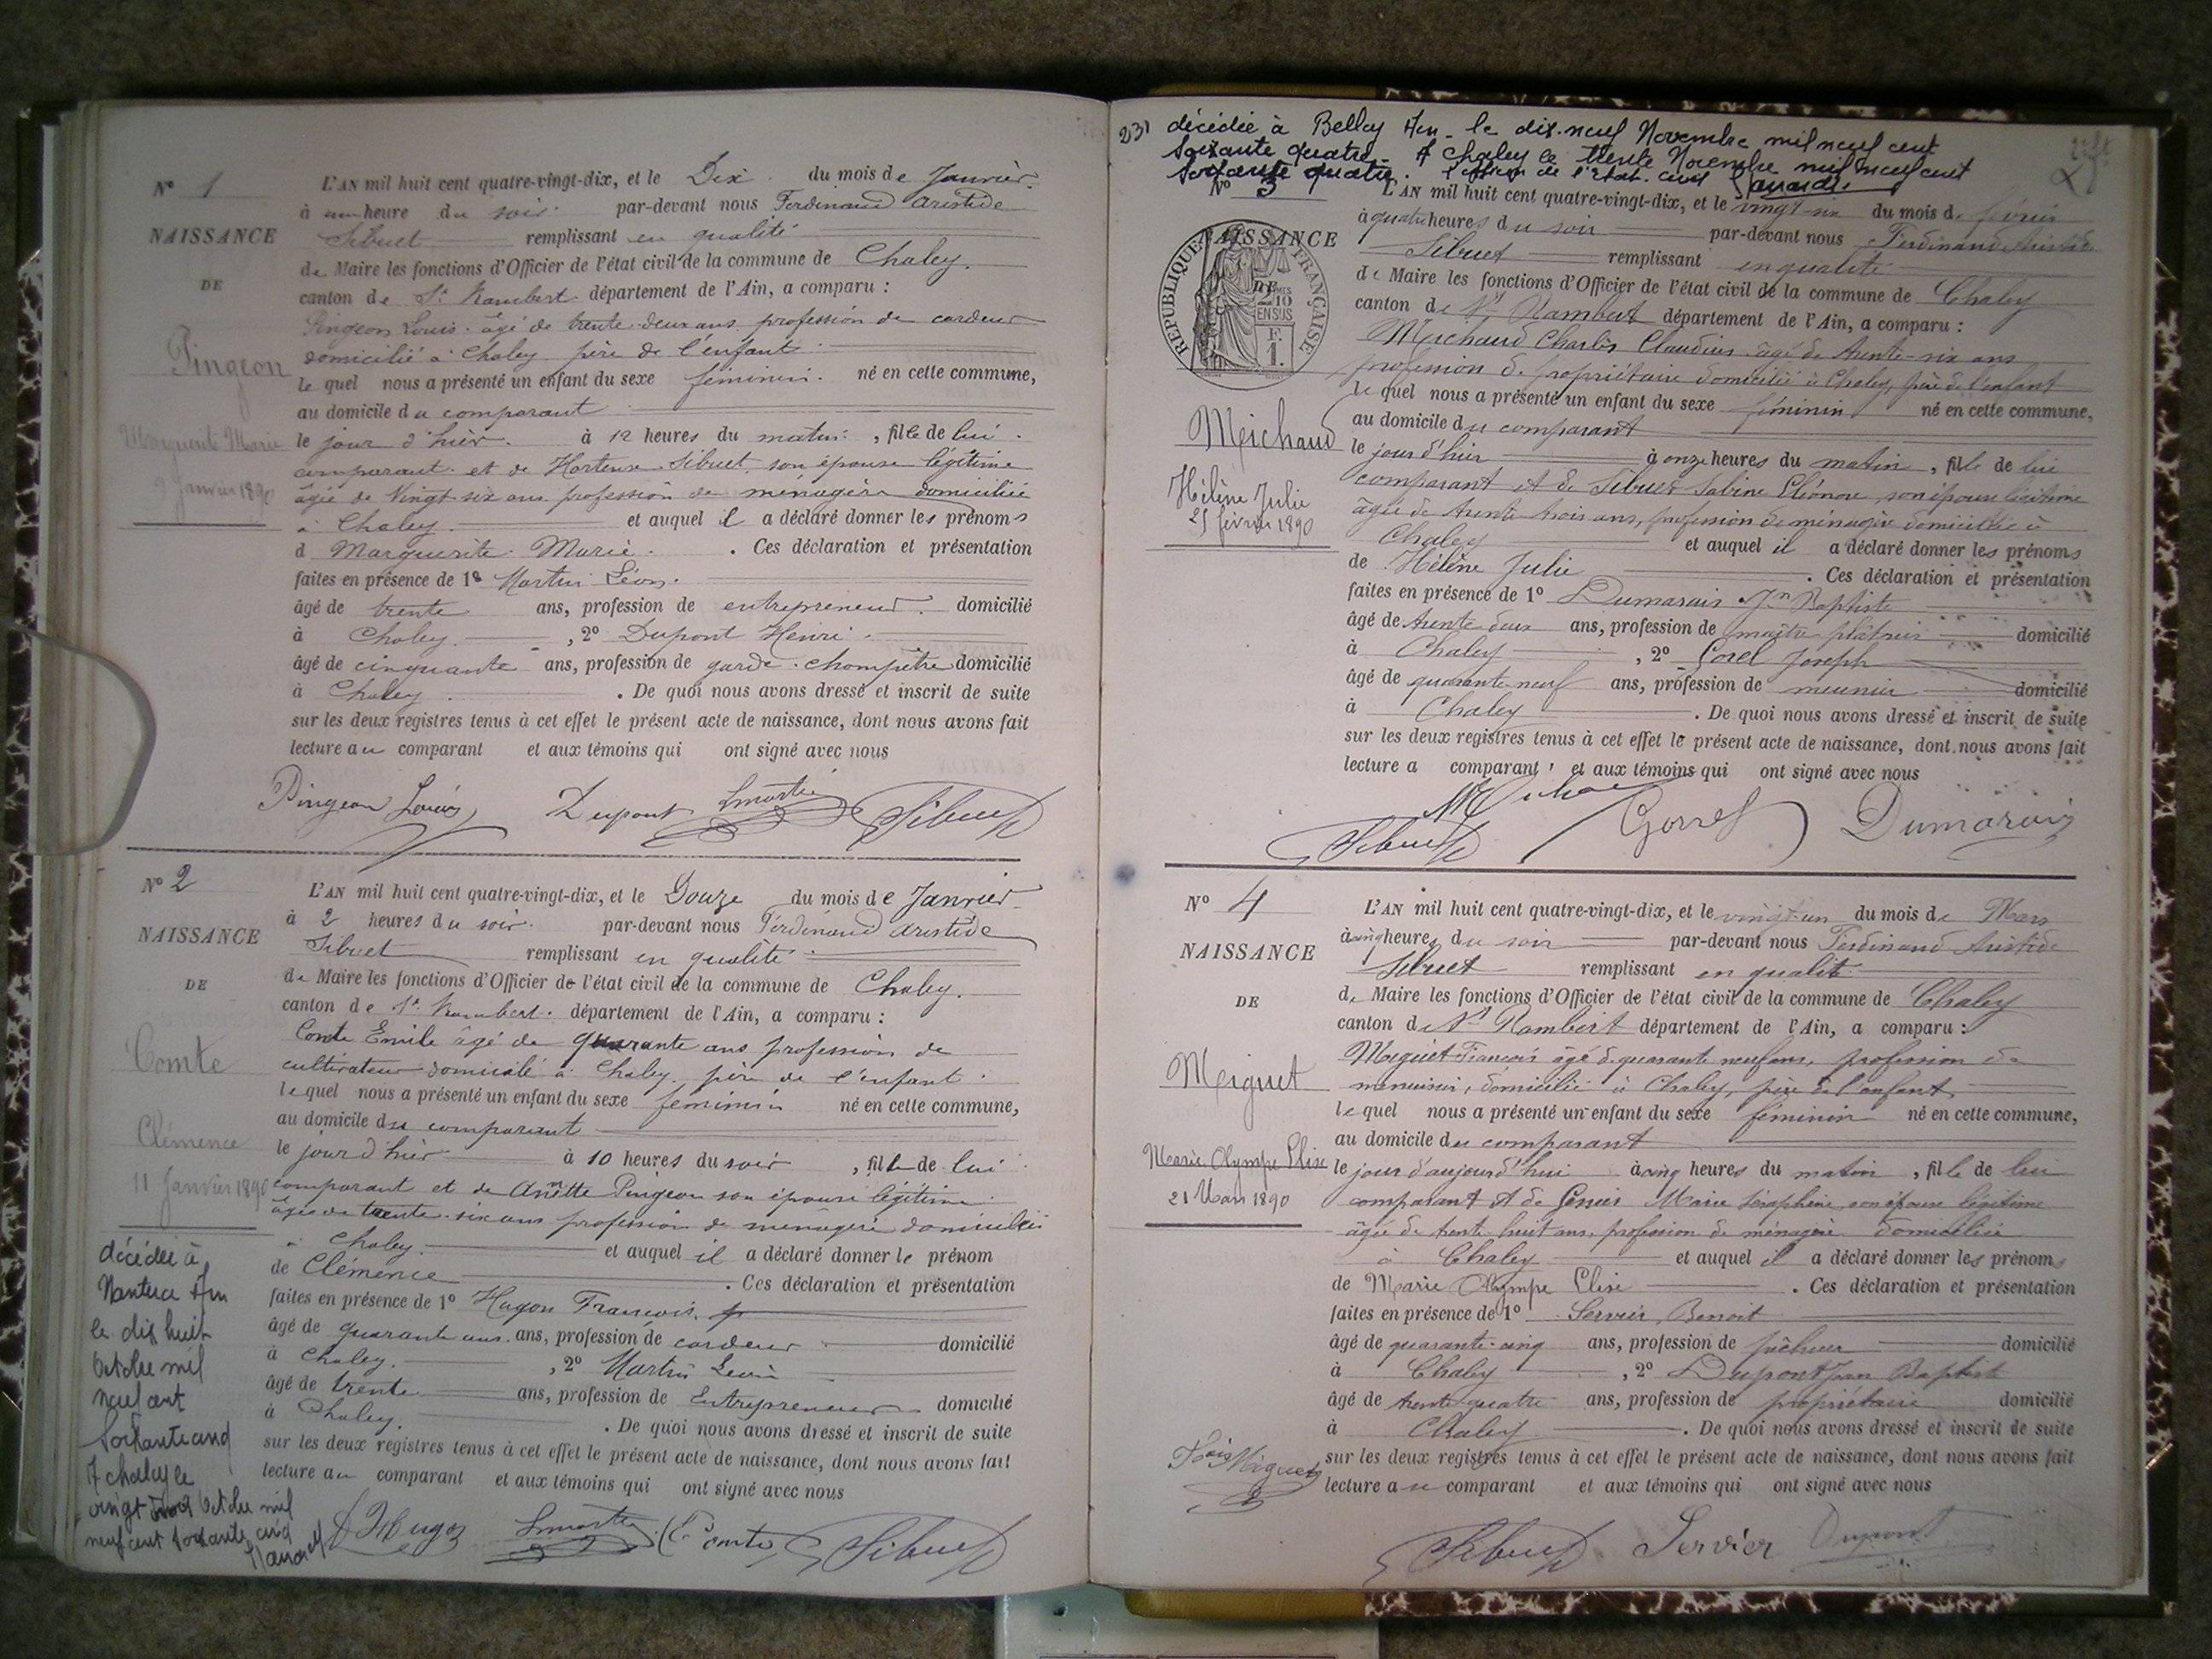 N° 1
NAISSANCE
DE
Pingeon
Marguerite Marie
9 Janvier 1890
L'AN mil huit cent quatre-vingt-dix, et le Dix du mois de Janvier
à une heure du soir par-devant nous Ferdinand Aristide
Sibuet remplissant en qualité
de Maire les fonctions d'Officier de l'état civil de la commune de Chaley.
canton de St Rambert département de l'Ain, a comparu :
Pingeon Louis âgé de trente-deux ans profession de cardeur
domicilié à Chaley père de l'enfant
le quel nous a présenté un enfant du sexe féminin né en cette commune,
au domicile du comparant
le jour d'hier à 12 heures du matin, fille de lui
comparant et de Hortense Sibuet son épouse légitime
âgée de Vingt-six ans profession de ménagère domiciliée
à Chaley et auquel il a déclaré donner les prénoms
d Marguerite Marie. Ces déclaration et présentation
faites en présence de 1° Martin Léon
âgé de trente ans, profession de entrepreneur domicilié
à Chaley, 2° Dupont Henri
âgé de cinquante ans, profession de garde-champêtre domicilié
à Chaley. De quoi nous avons dressé et inscrit de suite
sur les deux registres tenus à cet effet le présent acte de naissance, dont nous avons fait
lecture au comparant et aux témoins qui ont signé avec nous
Pingeon Louis Dupont Lmartin Sibuet
N° 2
NAISSANCE
DE
Comte
Clémence
11 Janvier 1890
décédée à
Nantua Ain
le dix huit
Octobre mil
neuf cent
soixante cinq
A chaley le
vingt Octobre mil
neuf cent soixante cinq
L'AN mil huit cent quatre-vingt-dix, et le Douze du mois de Janvier
à 2 heures du soir par-devant nous Ferdinand Aristide
Sibuet remplissant en qualité
de Maire les fonctions d'Officier de l'état civil de la commune de Chaley.
canton de St Rambert département de l'Ain, a comparu :
Comte Emile âgé de quarante ans profession de
cultivateur domicilié à Chaley, père de l'enfant
le quel nous a présenté un enfant du sexe féminin né en cette commune,
au domicile du comparant
le jour d'hier à 10 heures du soir, fille de lui
comparant et de Annette Pingeon son épouse légitime
âgée de trente-six ans profession de ménagère domiciliée
à Chaley et auquel il a déclaré donner le prénom
de Clémence. Ces déclaration et présentation
faites en présence de 1° Hugon François
âgé de quarante ans ans, profession de cardeur domicilié
à Chaley, 2° Martin Léon
âgé de trente ans, profession de Entrepreneur domicilié
à Chaley. De quoi nous avons dressé et inscrit de suite
sur les deux registres tenus à cet effet le présent acte de naissance, dont nous avons fait
lecture au comparant et aux témoins qui ont signé avec nous
Hugon Lmartin E Comte Sibuet
231 décédée à Belley Ain le dix-neuf Novembre mil neuf cent
soixante quatre. A Chaley le trente Novembre mil neuf cent
soixante quatre. l'officier de l'état-civil
N° 3
NAISSANCE
DE
RÉPUBLIQUE FRANÇAISE
Meichaud
Hélène Julie
25 février 1890
L'AN mil huit cent quatre-vingt-dix, et le vingt-six du mois de février
à quatre heures du soir par-devant nous Ferdinand Aristide
Sibuet remplissant en qualité
de Maire les fonctions d'Officier de l'état civil de la commune de Chaley
canton de St Rambert département de l'Ain, a comparu :
Meichaud Charles Claudius âgé de trente-six ans
profession de propriétaire domicilié à Chaley, père de l'enfant
le quel nous a présenté un enfant du sexe féminin né en cette commune,
au domicile du comparant
le jour d'hier à onze heures du matin, fille de lui
comparant et de Sibuet Sabine Eléonore son épouse légitime
âgée de trente-trois ans, profession de ménagère domiciliée à
Chaley et auquel il a déclaré donner les prénoms
de Hélène Julie. Ces déclaration et présentation
faites en présence de 1° Dumarais Jn Baptiste
âgé de trente deux ans, profession de maître plâtrier domicilié
à Chaley, 2° Gorel Joseph
âgé de quarante-neuf ans, profession de meunier domicilié
à Chaley. De quoi nous avons dressé et inscrit de suite
sur les deux registres tenus à cet effet le présent acte de naissance, dont nous avons fait
lecture a comparant et aux témoins qui ont signé avec nous
Sibuet Gorrel Dumarais
N° 4
NAISSANCE
DE
Meiguet
Marie Olympe Elise
21 Mars 1890
L'AN mil huit cent quatre-vingt-dix, et le vingt-un du mois de Mars
à cinq heures du soir par-devant nous Ferdinand Aristide
Sibuet remplissant en qualité
de Maire les fonctions d'Officier de l'état civil de la commune de Chaley
canton de St Rambert département de l'Ain, a comparu :
Meguet François âgé de quarante neuf ans, profession de
menuisier, domicilié à Chaley, père de l'enfant,
le quel nous a présenté un enfant du sexe féminin né en cette commune,
au domicile du comparant
le jour d'aujourd'hui à cinq heures du matin, fille de lui
comparant et de Marie Séraphine, son épouse légitime
âgée de trente huit ans, profession de ménagère domiciliée
à Chaley et auquel il a déclaré donner les prénoms
de Marie Olympe Elise. Ces déclaration et présentation
faites en présence de 1° Servier Benoit
âgé de quarante-cinq ans, profession de pêcheur domicilié
à Chaley, 2° Dupont Jean Baptiste
âgé de trente-quatre ans, profession de propriétaire domicilié
à Chaley. De quoi nous avons dressé et inscrit de suite
sur les deux registres tenus à cet effet le présent acte de naissance, dont nous avons fait
lecture au comparant et aux témoins qui ont signé avec nous
Fois Miguet
Sibuet Servier Dupont